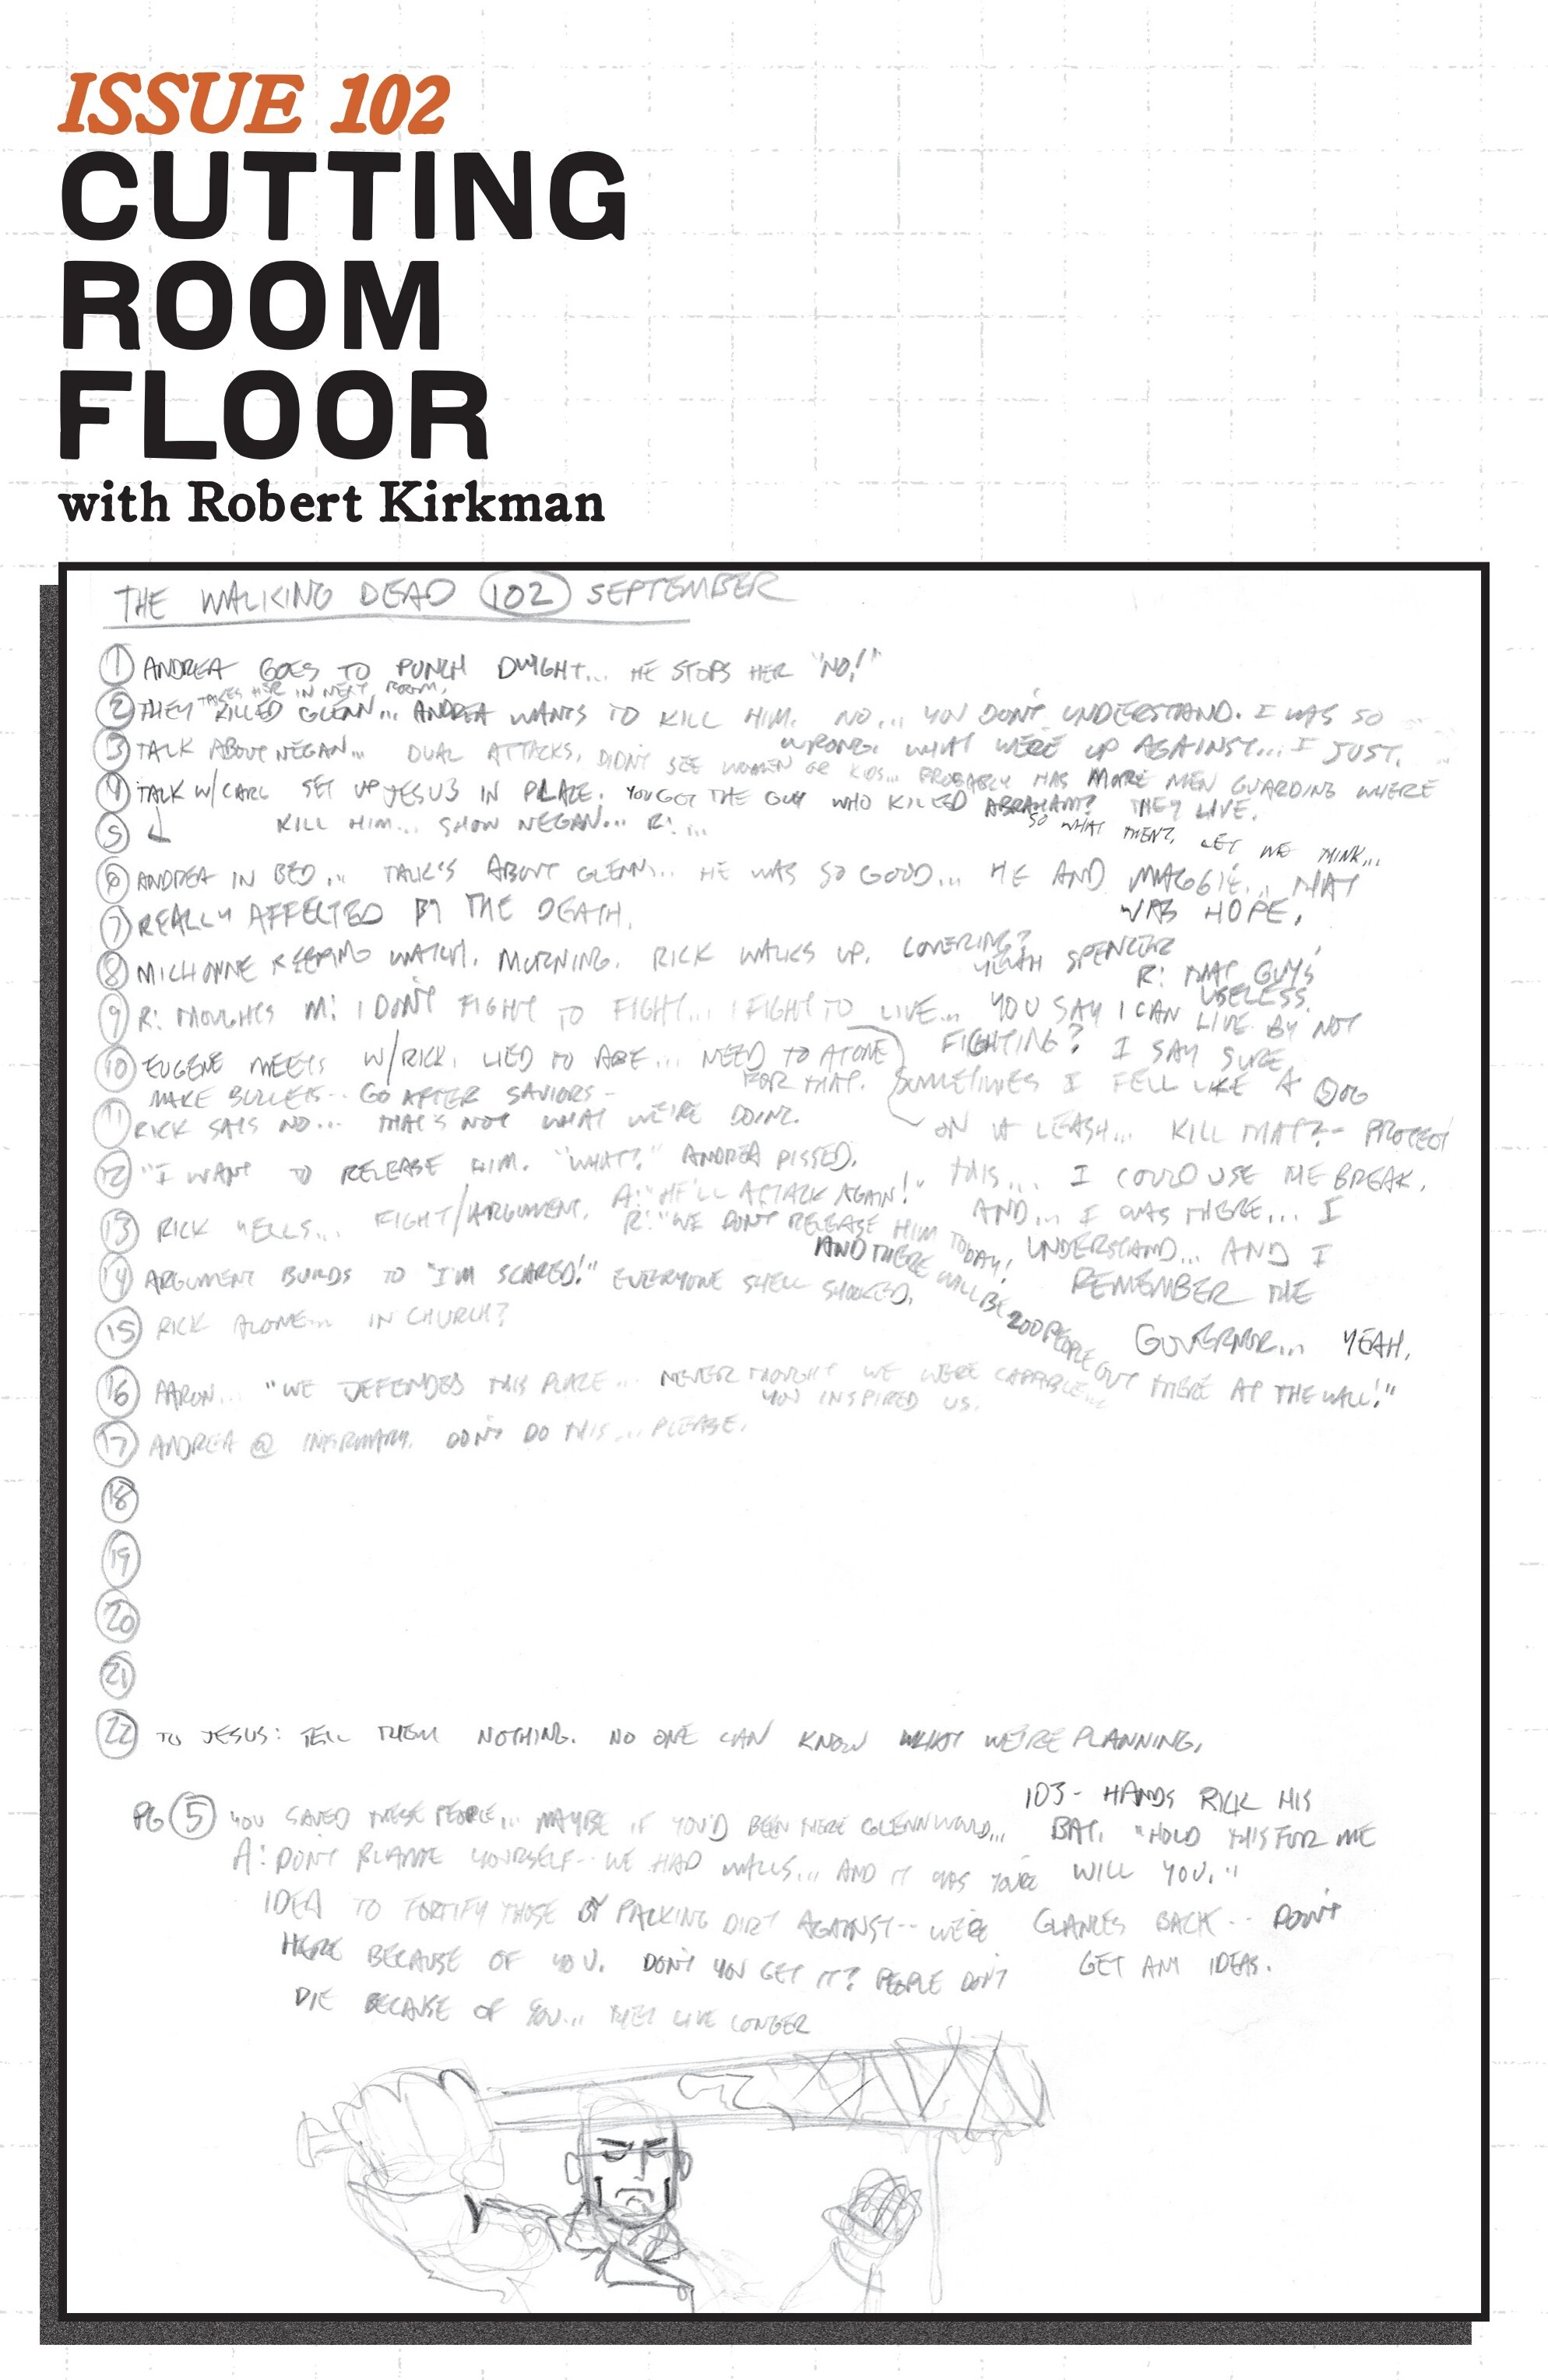 ISSUE 102
CUTTING
ROOM
FLOOR
with Robert Kirkman
THE WALKING DEAD 102 SEPTEMBER
1 ANDREA GOES TO PUNCH DWIGHT... HE STOPS HER "NO!"
TAKES HER IN NEXT ROOM.
2 THEY KILLED GLENN... ANDREA WANTS TO KILL HIM. NO... YOU DON'T UNDERSTAND. I WAS SO
WRONG. WHAT WE'RE UP AGAINST... I JUST.
3 TALK ABOUT NEGAN... DUAL ATTACKS, DIDN'T SEE WOMEN OR KIDS... PROBABLY HAS MORE MEN GUARDING WHERE
THEY LIVE.
4 TALK W/CARL SET UP JESUS IN PLACE. YOU GET THE GUY WHO KILLED ABRAHAM?
SO WHAT THEN? LET ME THINK...
5 KILL HIM... SHOW NEGAN... R: ...
6 ANDREA IN BED... TALK'S ABOUT GLENN... HE WAS SO GOOD... HE AND MAGGIE... THAT
WAS HOPE.
7 REALLY AFFECTED BY THE DEATH.
8 MICHONNE KEEPING WATCH. MORNING. RICK WALKS UP. COVERING?
YEAH SPENCER
R: THAT GUY'S
USELESS.
9 R: THOUGHTS M: I DON'T FIGHT TO FIGHT... I FIGHT TO LIVE... YOU SAY I CAN LIVE BY NOT
FIGHTING? I SAY SURE.
10 EUGENE MEETS W/RICK. LIED TO ABE... NEED TO ATONE
FOR THAT.
MAKE BULLETS-- GO AFTER SAVIORS-
SOMETIMES I FELL LIKE A DOG
ON A LEASH... KILL THAT?-- PROTECT
THIS... I COULD USE THE BREAK.
AND... I WAS THERE... I
UNDERSTAND... AND I
REMEMBER THE
GOVERNOR... YEAH.
11 RICK SAYS NO... THAT'S NOT WHAT WE'RE DOING.
12 "I WANT TO RELEASE HIM. "WHAT?" ANDREA PISSED.
13 RICK YELLS... FIGHT/ARGUMENT. A: "HE'LL ATTACK AGAIN!"
R: "WE DON'T RELEASE HIM TODAY!
AND THERE WILL BE 200 PEOPLE OUT THERE AT THE WALL!"
14 ARGUMENT BUILDS TO "I'M SCARED!" EVERYONE SHELL SHOCKED.
15 RICK ALONE... IN CHURCH?
16 AARON... "WE DEFENDED THIS PLACE... NEVER THOUGHT WE WERE CAPABLE...
YOU INSPIRED US.
17 ANDREA @ INFIRMARY. DON'T DO THIS... PLEASE.
18
19
20
21
22 TO JESUS: TELL THEM NOTHING. NO ONE CAN KNOW WHAT WE'RE PLANNING.
PG 5 YOU SAVED THESE PEOPLE... MAYBE IF YOU'D BEEN THERE GLENN WOULD...
A: DON'T BLAME YOURSELF-- WE HAD WALLS... AND IT WAS YOURE
IDEA TO FORTIFY THOSE BY PACKING DIRT AGAINST-- WE'RE
HERE BECAUSE OF YOU. DON'T YOU GET IT? PEOPLE DON'T
DIE BECAUSE OF YOU... THEY LIVE LONGER
103- HANDS RICK HIS
BAT. "HOLD THIS FOR ME
WILL YOU."
GLANCES BACK-- DON'T
GET ANY IDEAS.